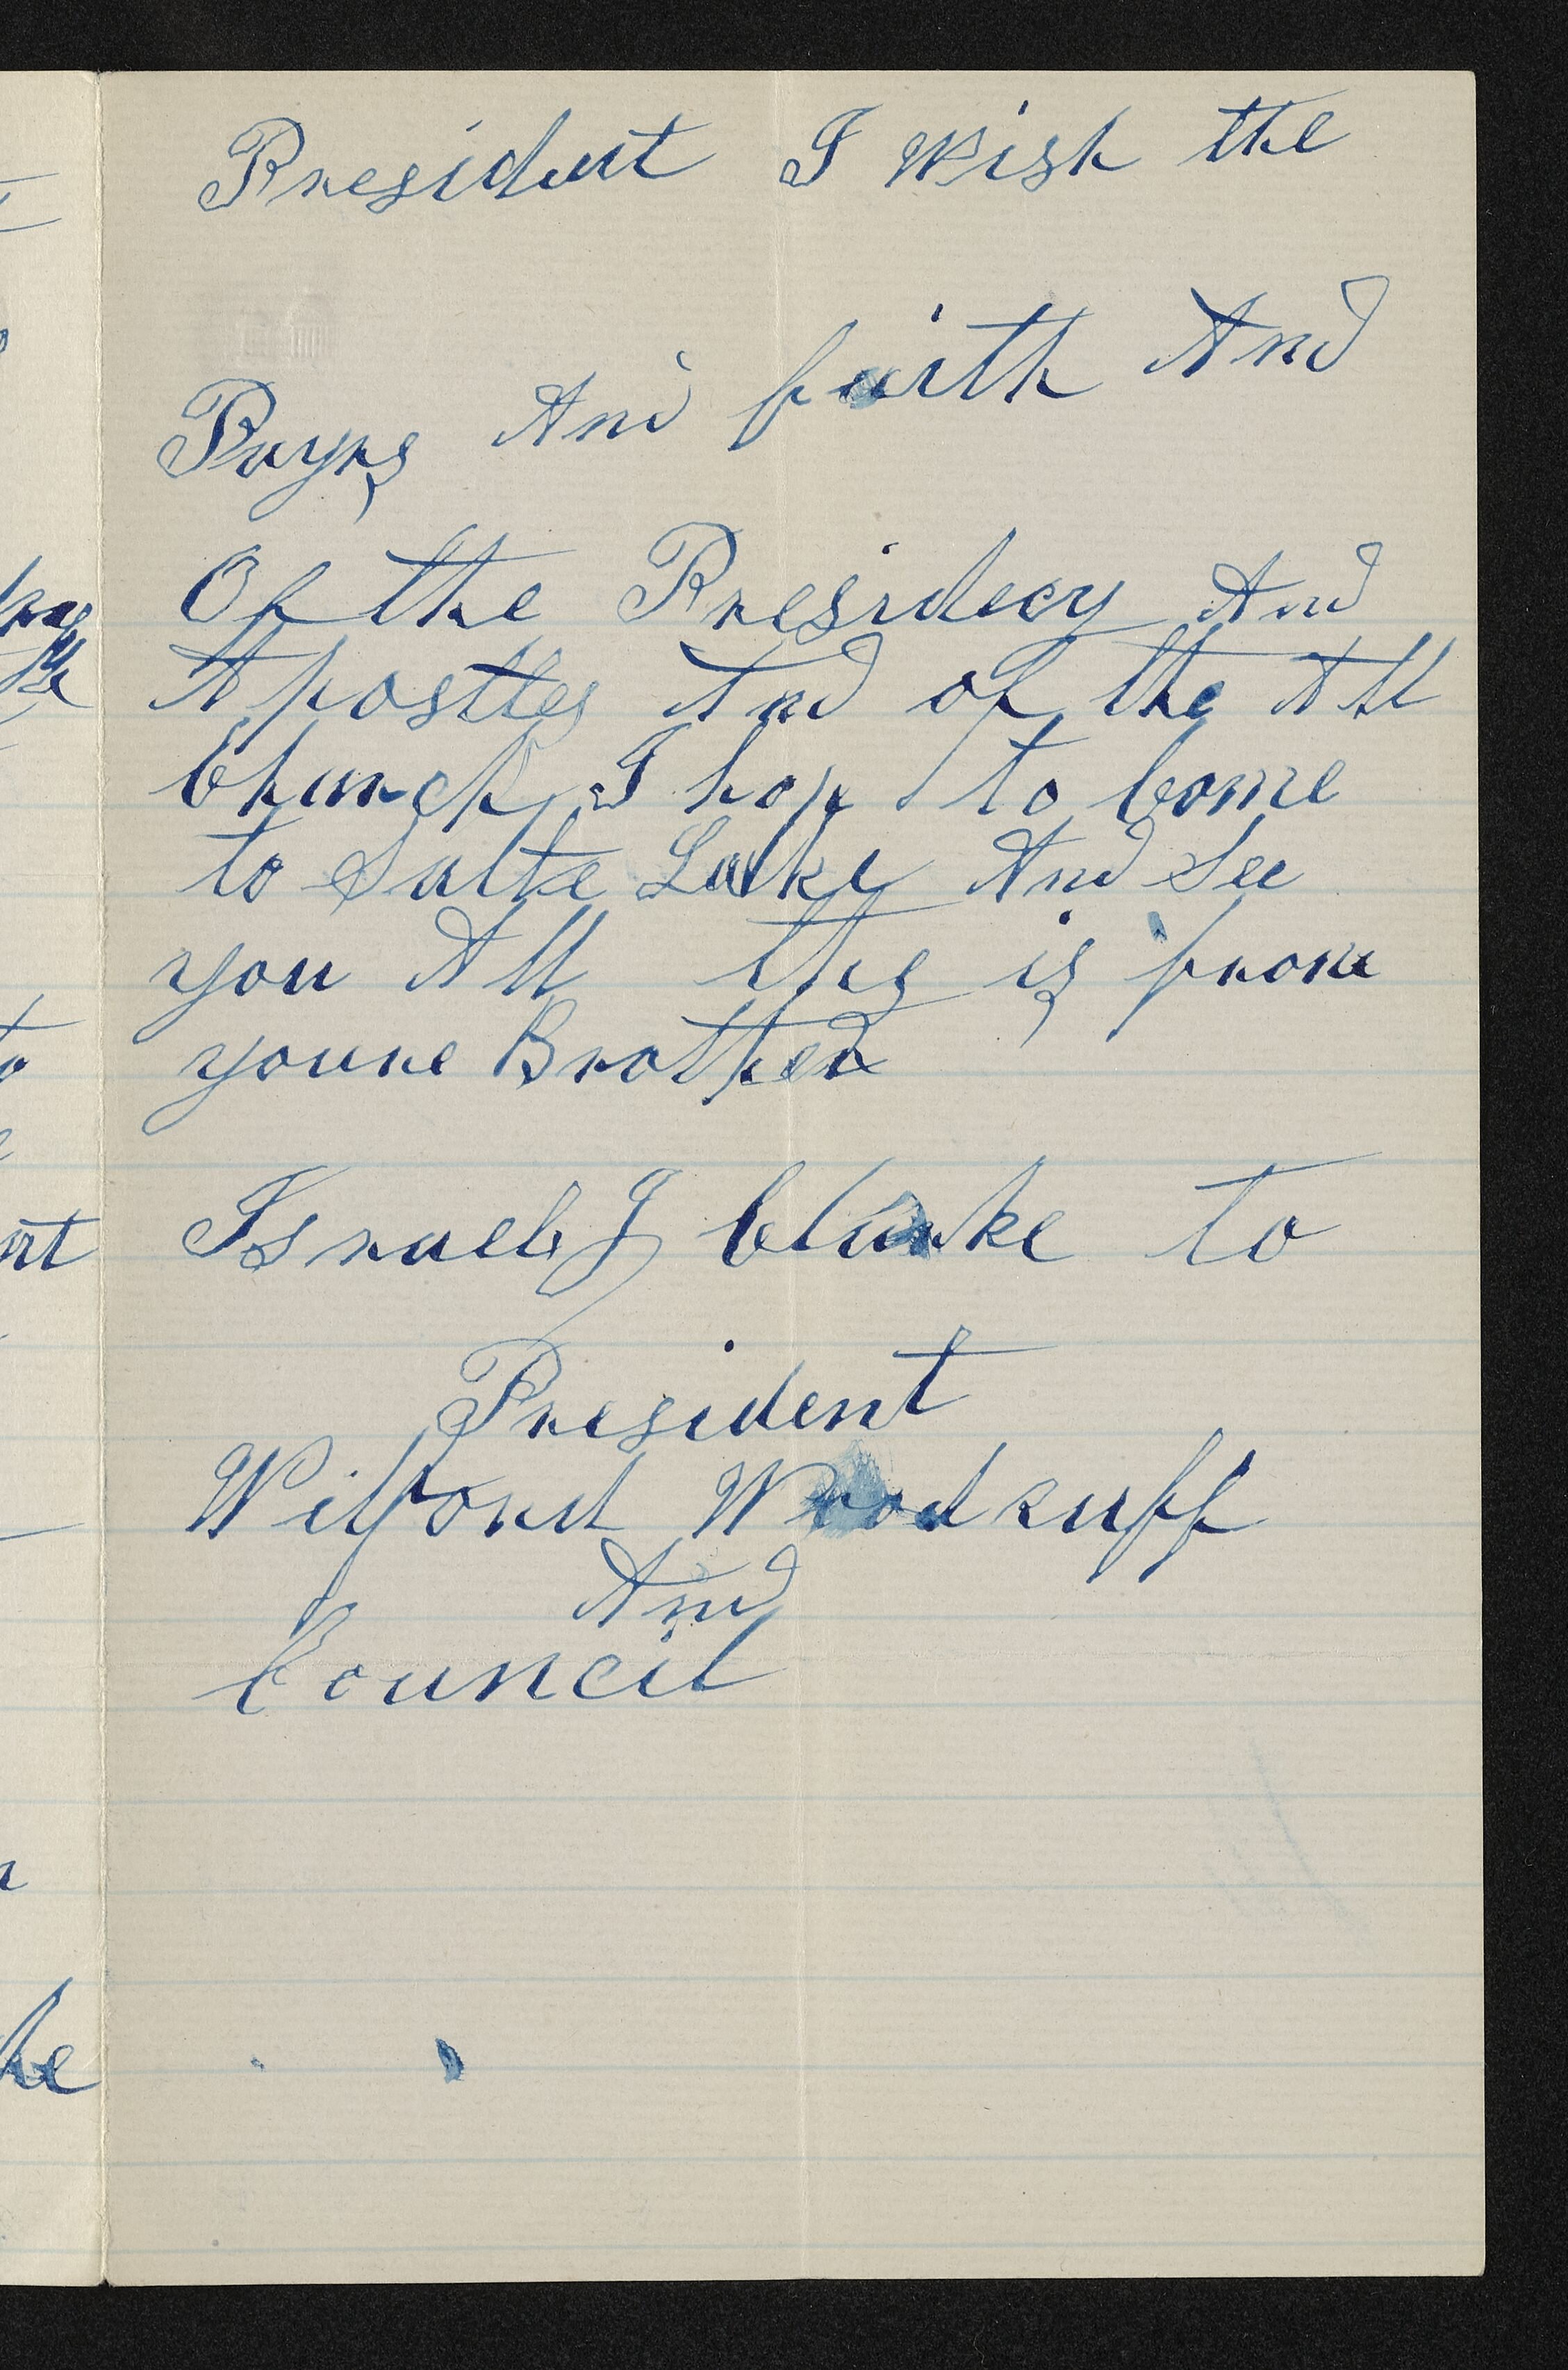 President I Wish the
Prayrs And faith And
Of the Presidecy And
Apostles And of the All
Church I hop to Come
to Salte Lake And See
you All this is from
youre Brother
Israel J Clarke to
President
Wilford Woodruff
And
Council